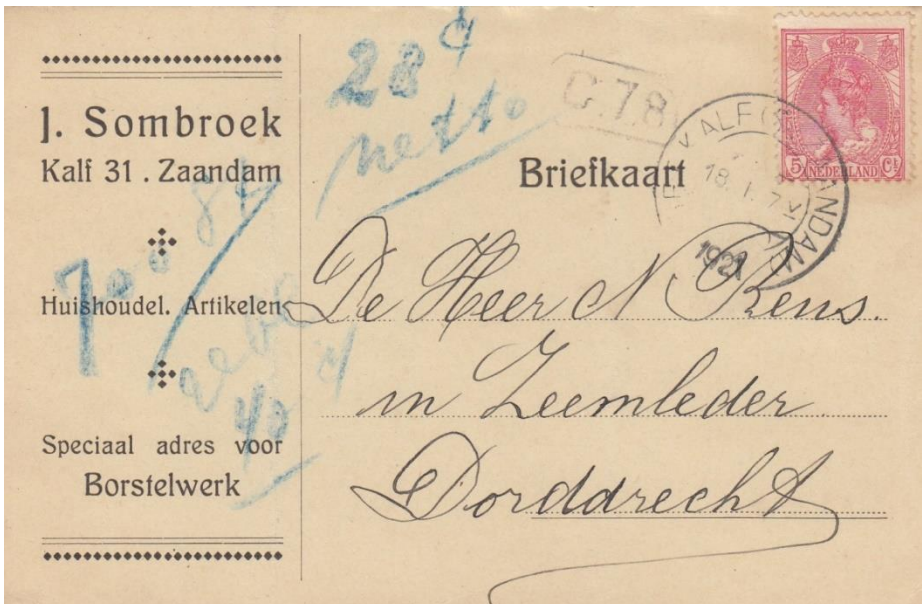 J. Sombroek
Kalf 31 . Zaandam
Huishoudel. Artikelen
Speciaal adres voor
Borstelwerk
28
netto
40
C.78
Briefkaart
18.1.7
1921
5 NEDERLAND Ct
De Heer N Rens.
in Zeemleder
Dorddrecht